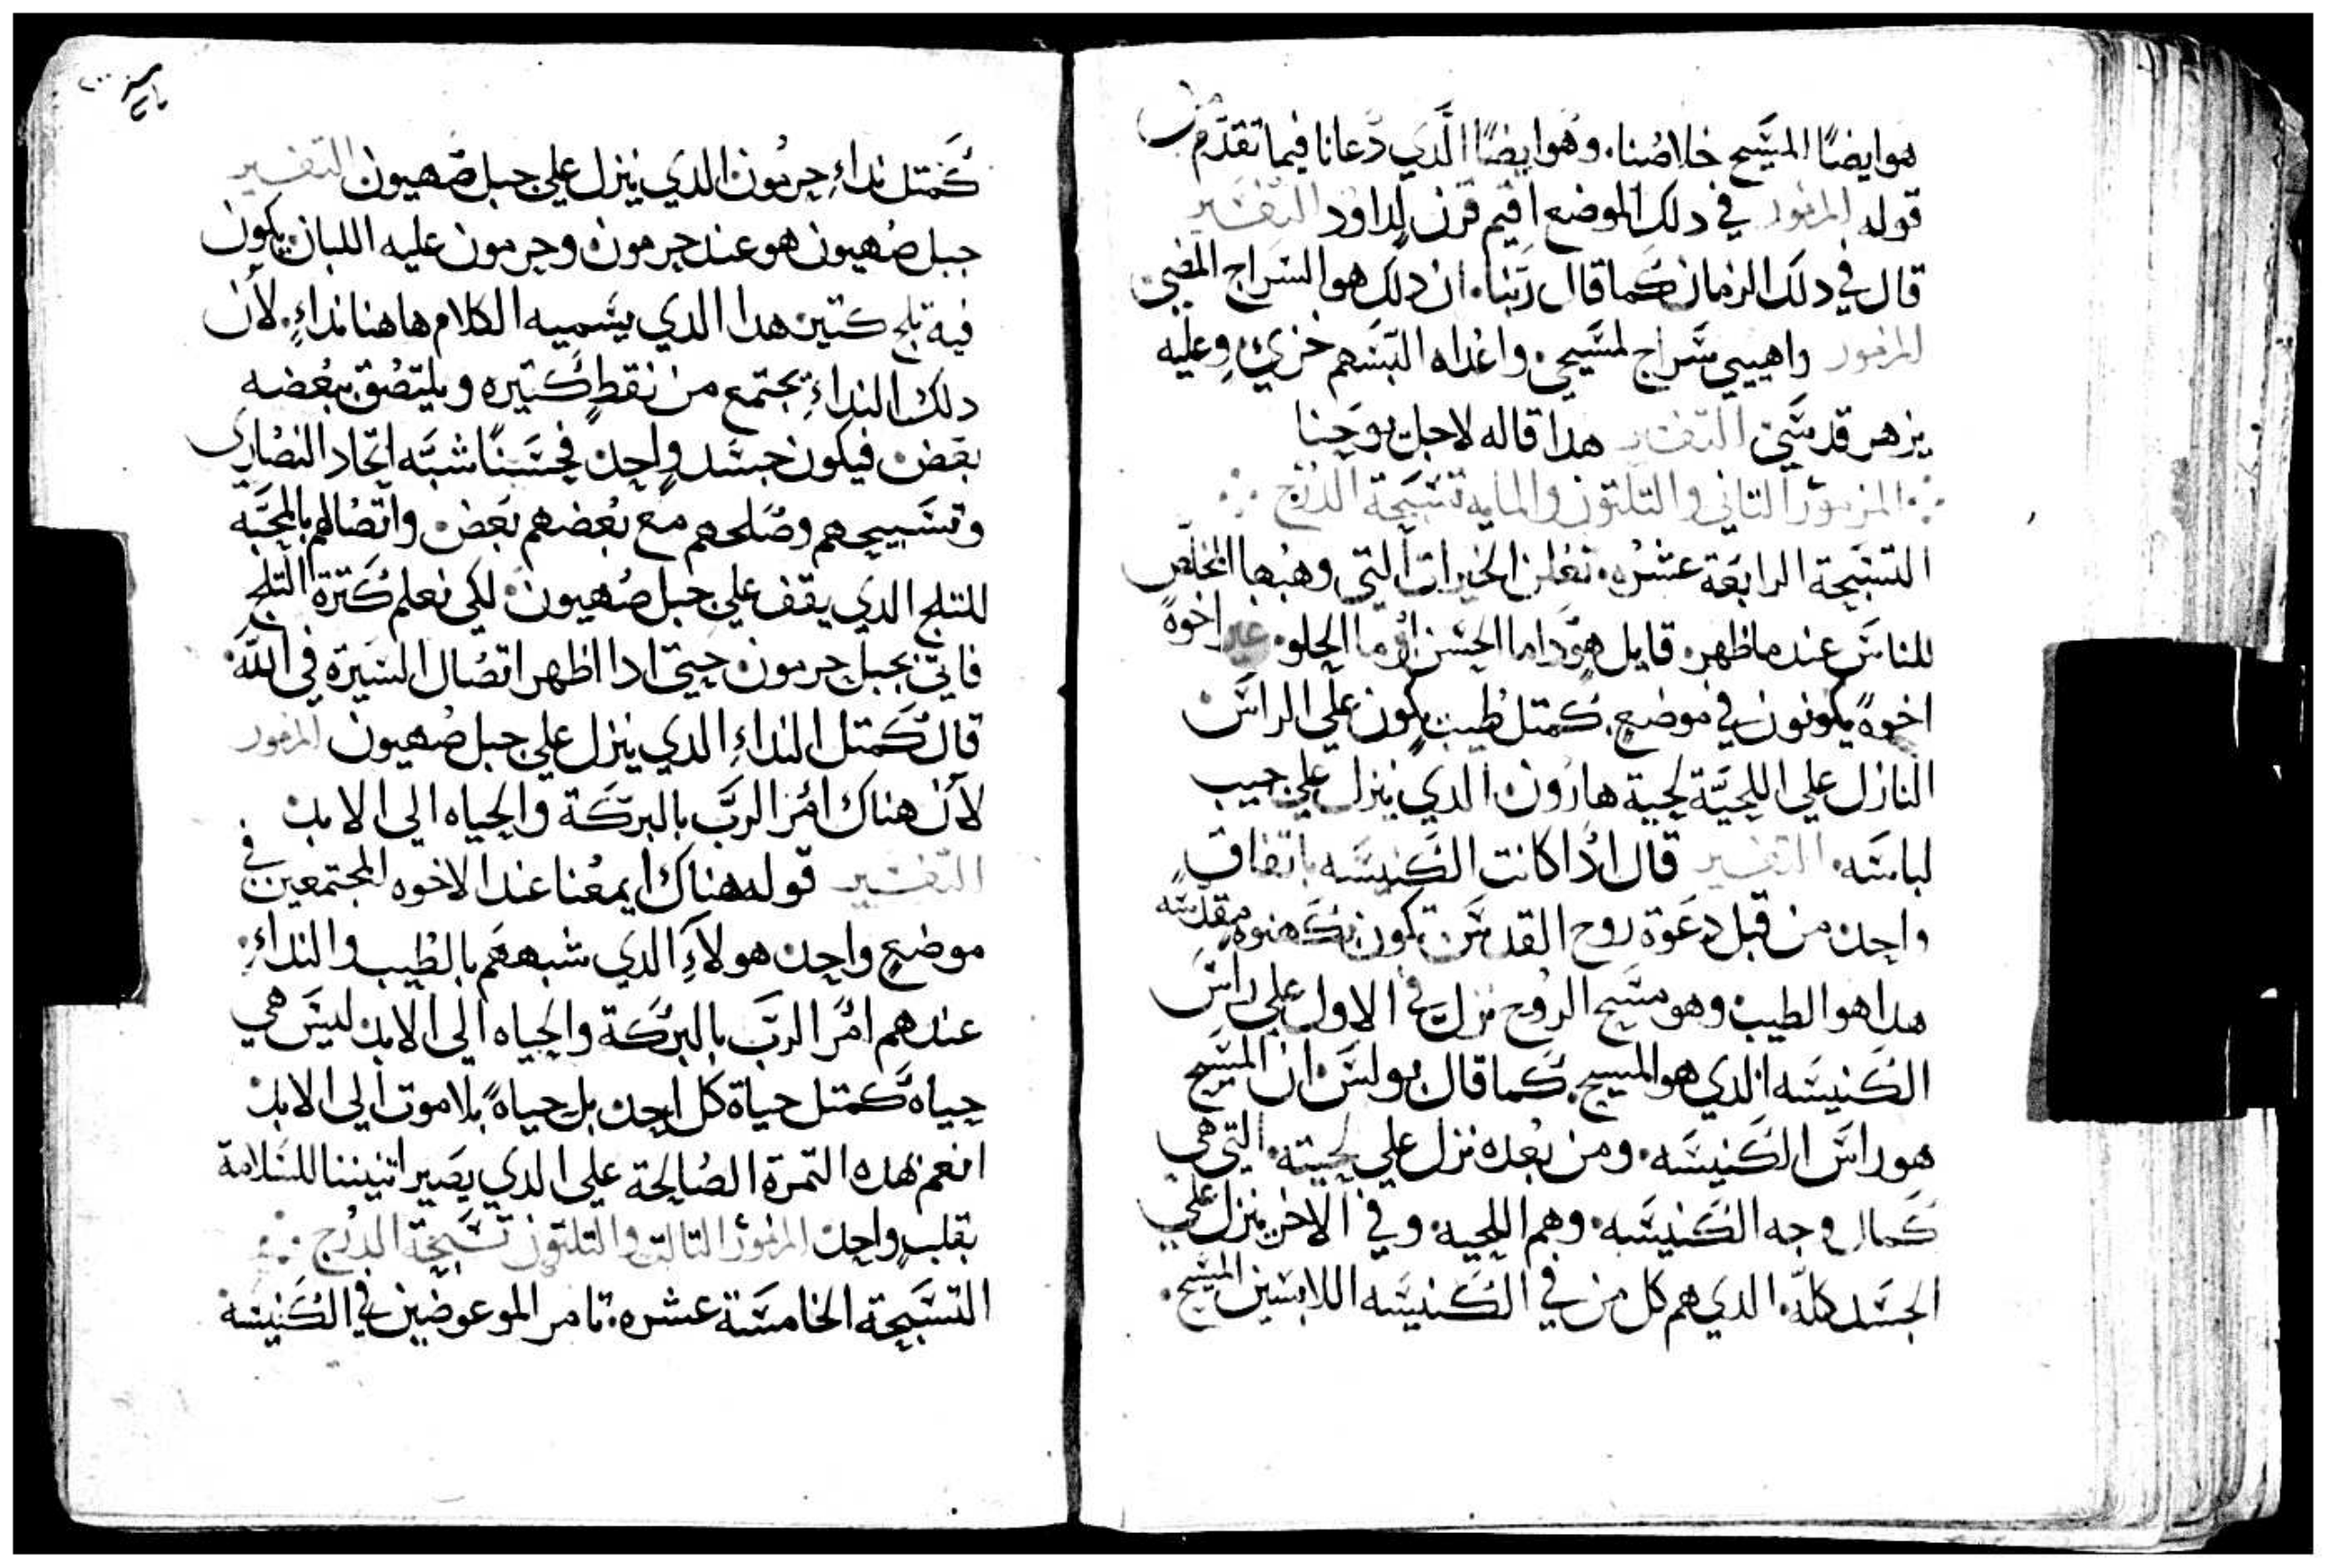 هو ايضًا المسَيح خلاصُنا. وهو ايضًا الَّدي دعانا فيما تقدَّم
قوله المزمور في دلك الموضع اقيم قرن لداوُد التفسَير
قال في دلك الزمان كما قال ربّنا. ان دلك هو السَراج المضي
المزمور واهييي سَراج لمسَيحي. واعداه البسَهم خزي. وعليه
يزهر قدسَي التفسير هدا قاله لاجل يوحنا
المزمور التاني والتلتون والمايه تسَبحة الدرج
التسَبحة الرابعَة عشره. تعلن الخيرات التي وهبها المخلّص
للناسَ عند ما ظهر. قايل هودا ما الحسَن او ما الحلو. اخوة
اخوةً يكونون في موضعٍ. كمتل طيب يكون علي الراسَ
النازل علي اللحيَة لحية هارُون الدي ينزل علي جيب
لباسَه. التفسير قال ادا كانت الكنيسَه باتفاق
واحد من قبل دعَوة روح القدسَ تكون كهنوه مقدسَه
هدا هو الطيب وهو مسَيح الروح نزل في الاول علي راسَ
الكنيسَه الدي هو المسيح. كما قال بولسَ ان المسَيح
هو راسَ الكنيسَه. ومن بعُده نزل علي لحيته. التي هي
كمال وجه الكنيسَه. وهم اللحيه. وفي الاخر ينزل علي
الجسَد كلّه. الدي هم كل من في الكنيسَه اللابسَين المسَيح.
كَمتل نداءِ حرمُون الدي ينزل علي جبل صُهيون التفسير
جبل صُهيون هو عند حرمون وحرمون عليه اللبان يكون
فيه تلج كتير. هدا الدي يسَميه الكلام هاهنا نداءٍ. لأن
دلك النداءِ يجتمع من نقطٍ كتيره ويلتصُق ببعُضه
بعَض. فيكون جسَد واحد فحسَنًا شبَّه اتحاد النصُاري
وتسَبيحهم وصُلحهم مع بعُضهم بعَض. واتصُالهم بالمحبَّه
للتلج الدي يقف علي جبل صُهيون. لكي نعلم كَترة التلج
فاتي بجبل حرمون. حيتي ادا اظهر اتصُال السَيرة في اللَّه.
قال كَمتل النداءِ الدي ينزل علي جبل صُهيون المزمور
لأن هناك امُر الربَّ بالبركَة والحياه الي الابد
التفسَير قوله هناك ايمعُنا عند الاخوه المجتمعين في
موضعٍ واحد هولاءِ الدي شبههَم بالطيب والنداءِ.
عندهم امُر الربَّ بالبركَة والحياه الي الابد ليسَ هي
حياه كَمتل حياة كل احد بل حياهً بلا موت الي الابد
انعم بهده التمرة الصُالحة علي الدي يصَير اتنيننا للسَلامة
بقلب واحد المزمور التالت والتلتون تسَبحة الدرج
التسَبحة الخامسَة عشره. تامر الموعوضين في الكنيسَه